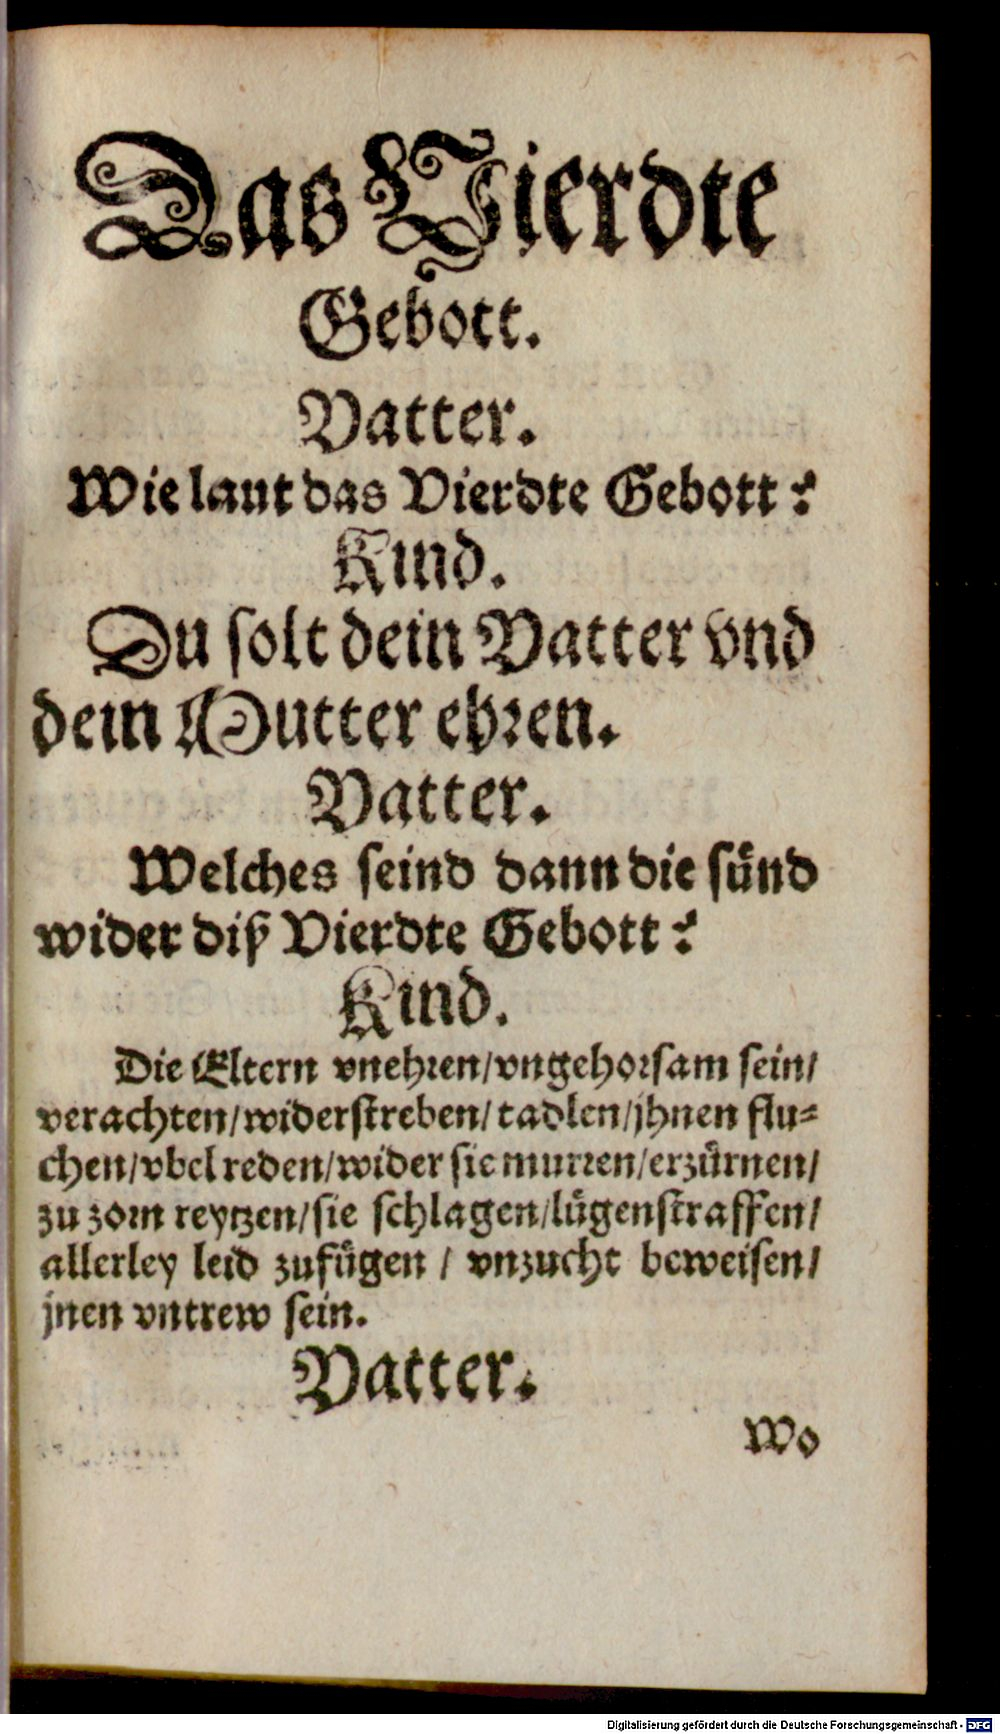 Das Vierdte
Gebott.
Vatter.
Wie laut das Vierdte Gebott?
Kind.
Du solt dein Vatter vnd
dein Mutter ehren.
Vatter.
Welches seind dann die sünd
wider diß Vierdte Gebott?
Kind.
Die Eltern vnehren/vngehorsam sein/
verachten/widerstreben/tadlen/jhnen flu=
chen/vbel reden/wider sie murren/erzürnen/
zu zorn reytzen/sie schlagen/lügenstraffen/
allerley leid zufügen / vnzucht beweisen/
jnen vntrew sein.
Vatter.
Wo
Digitalisierung gefördert durch die Deutsche Forschungsgemeinschaft - DFG